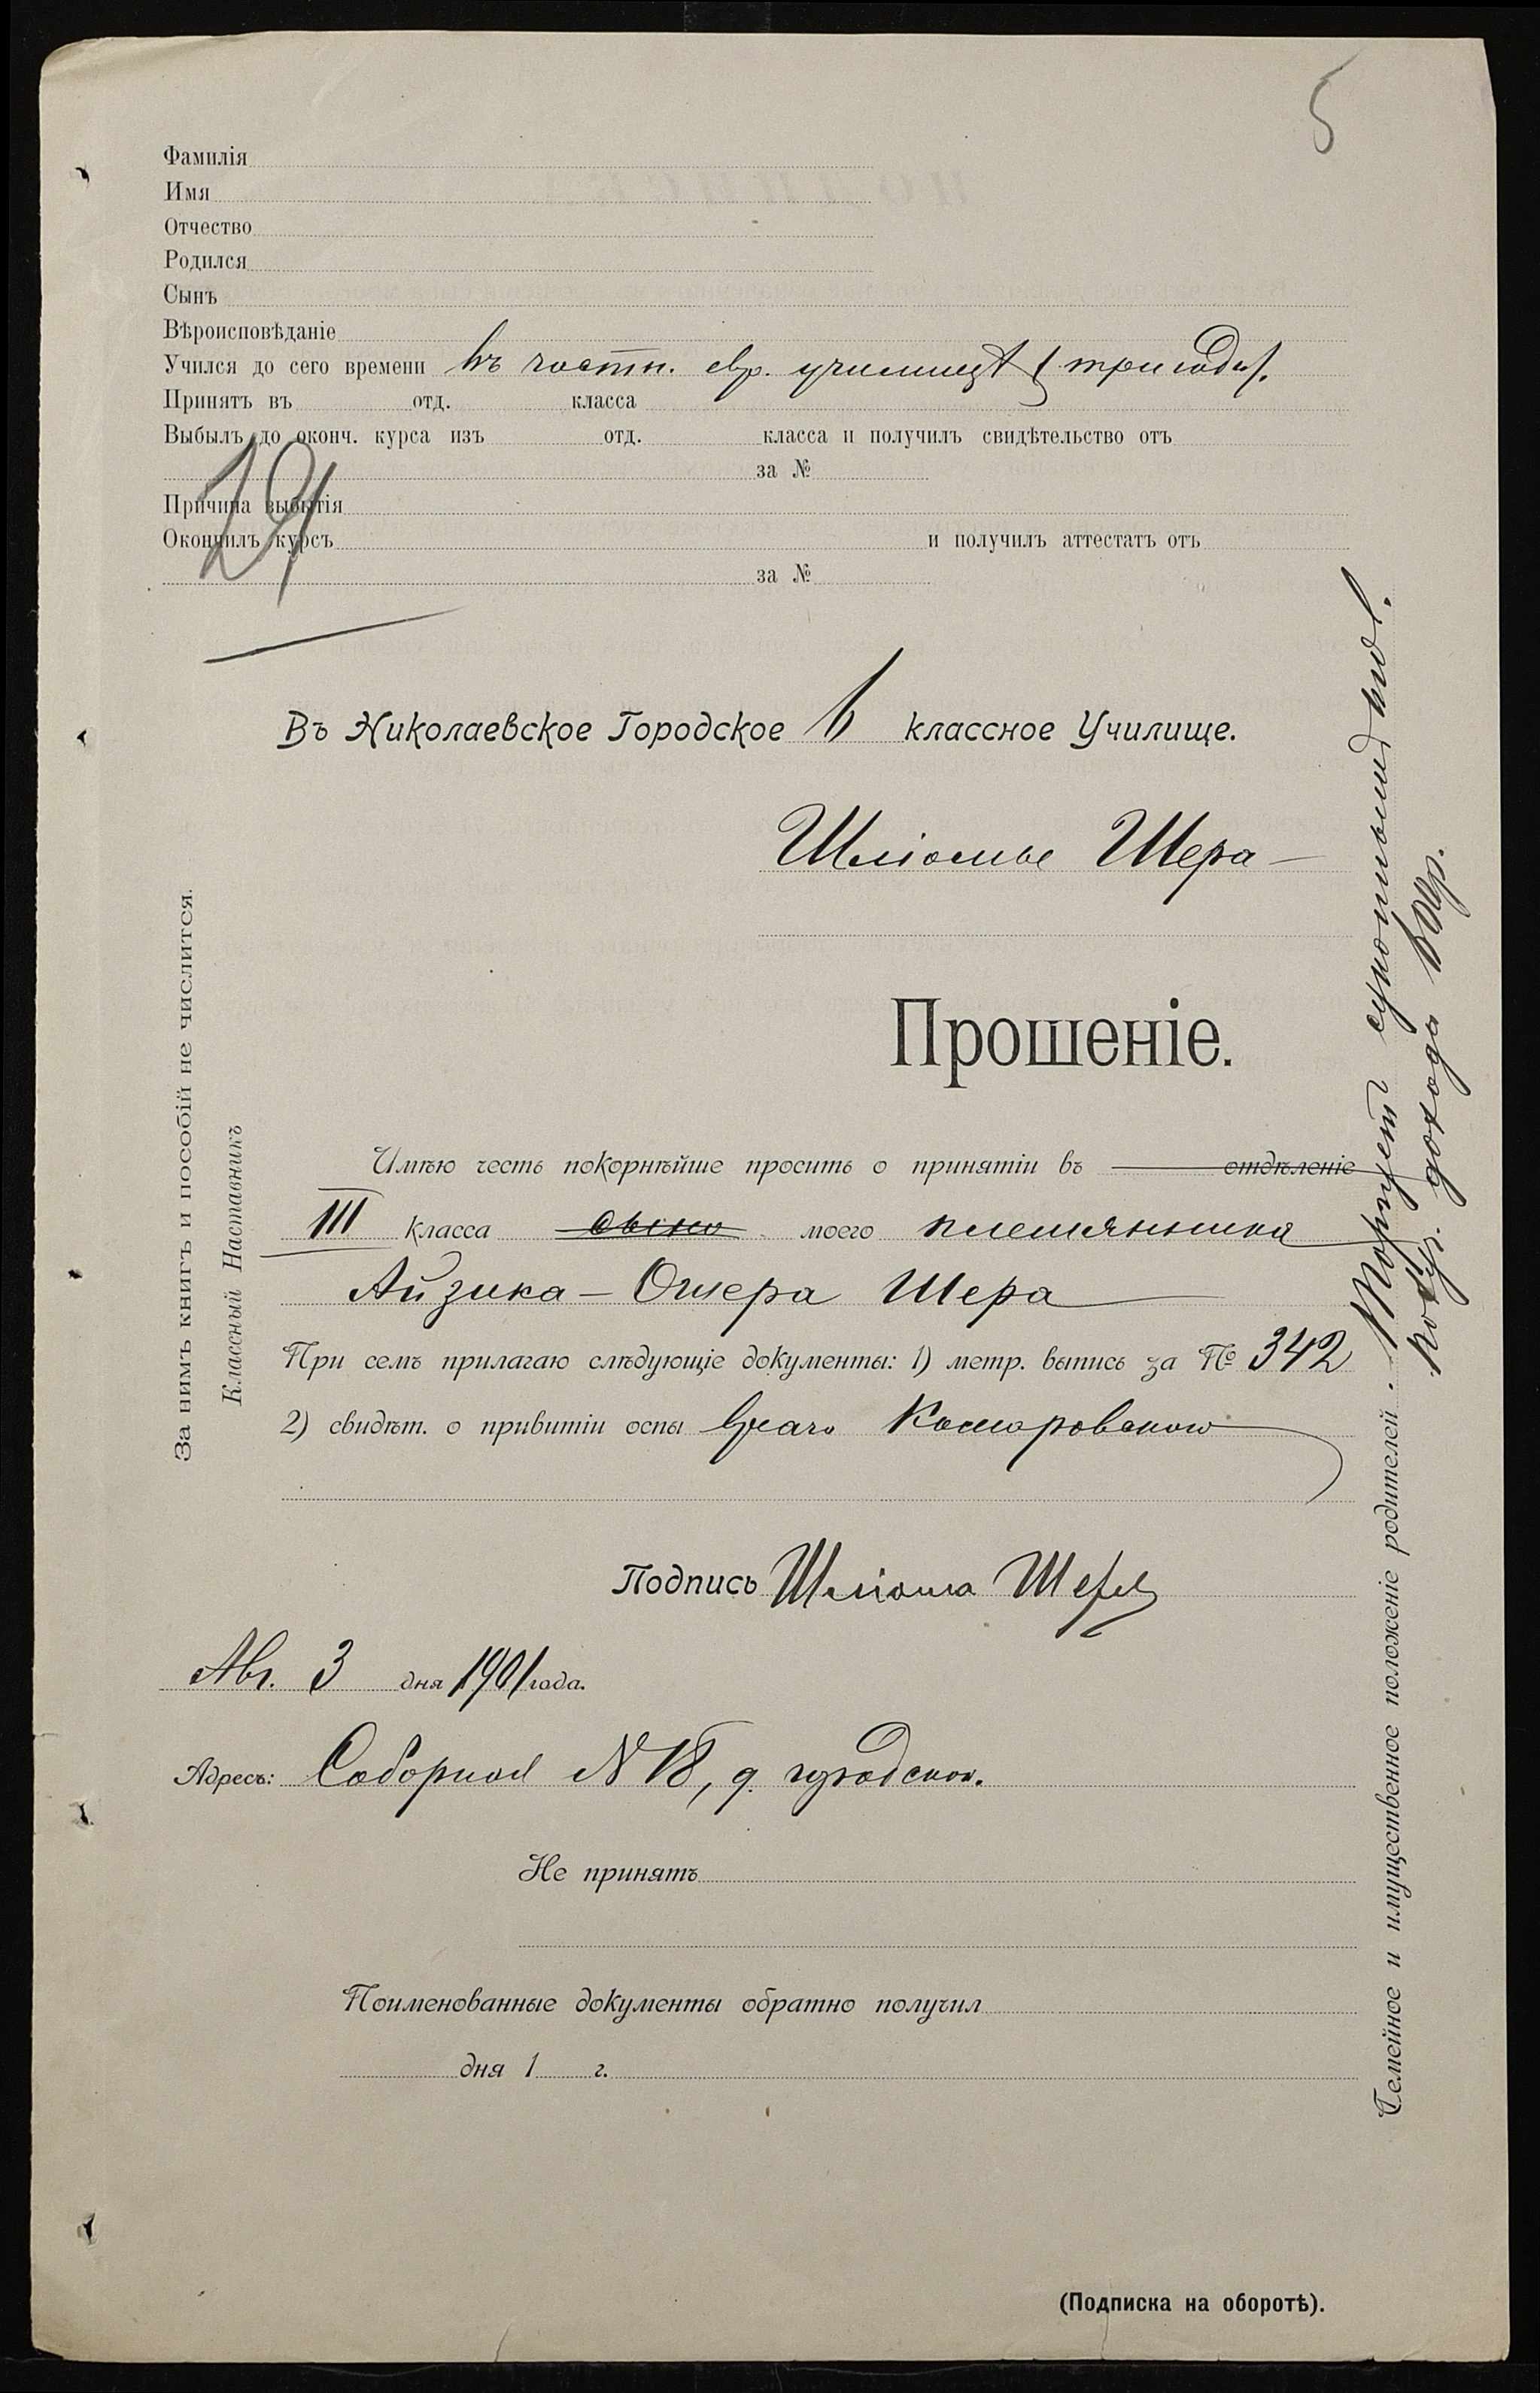 5
Фамилія
Имя
Отчество
Родился
Сынъ
Вѣроисповѣданіе
Учился до сего времени въ частн. евр. училищѣ (три года).
Принятъ въ отд. класса
Выбылъ до оконч. курса изъ отд. класса и получилъ свидѣтельство отъ
за №
Причина выбытія
Окончилъ курсъ и получилъ аттестатъ отъ
за №
Въ Николаевское Городское 6 классное Училище.
Шліомы Шера
Прошеніе.
Имѣю честь покорнѣйше просить о принятіи въ отдѣленіе
III класса сына моего племянника
Айзика-Ошера Шера
При семъ прилагаю слѣдующіе документы: 1) метр. выпись за № 342
2) свидѣт. о привитіи оспы врача Комаровскаго
Подпись Шліома Шеръ
Авг. 3 дня 1901 года.
Адресъ: Соборная N 18, д. городской.
Не принятъ
Поименованные документы обратно получил
дня 1 г.
(Подписка на оборотѣ).
За нимъ книгъ и пособій не числится.
Классный Наставникъ
Семейное и имущественное положеніе родителей. Торгует
дохода